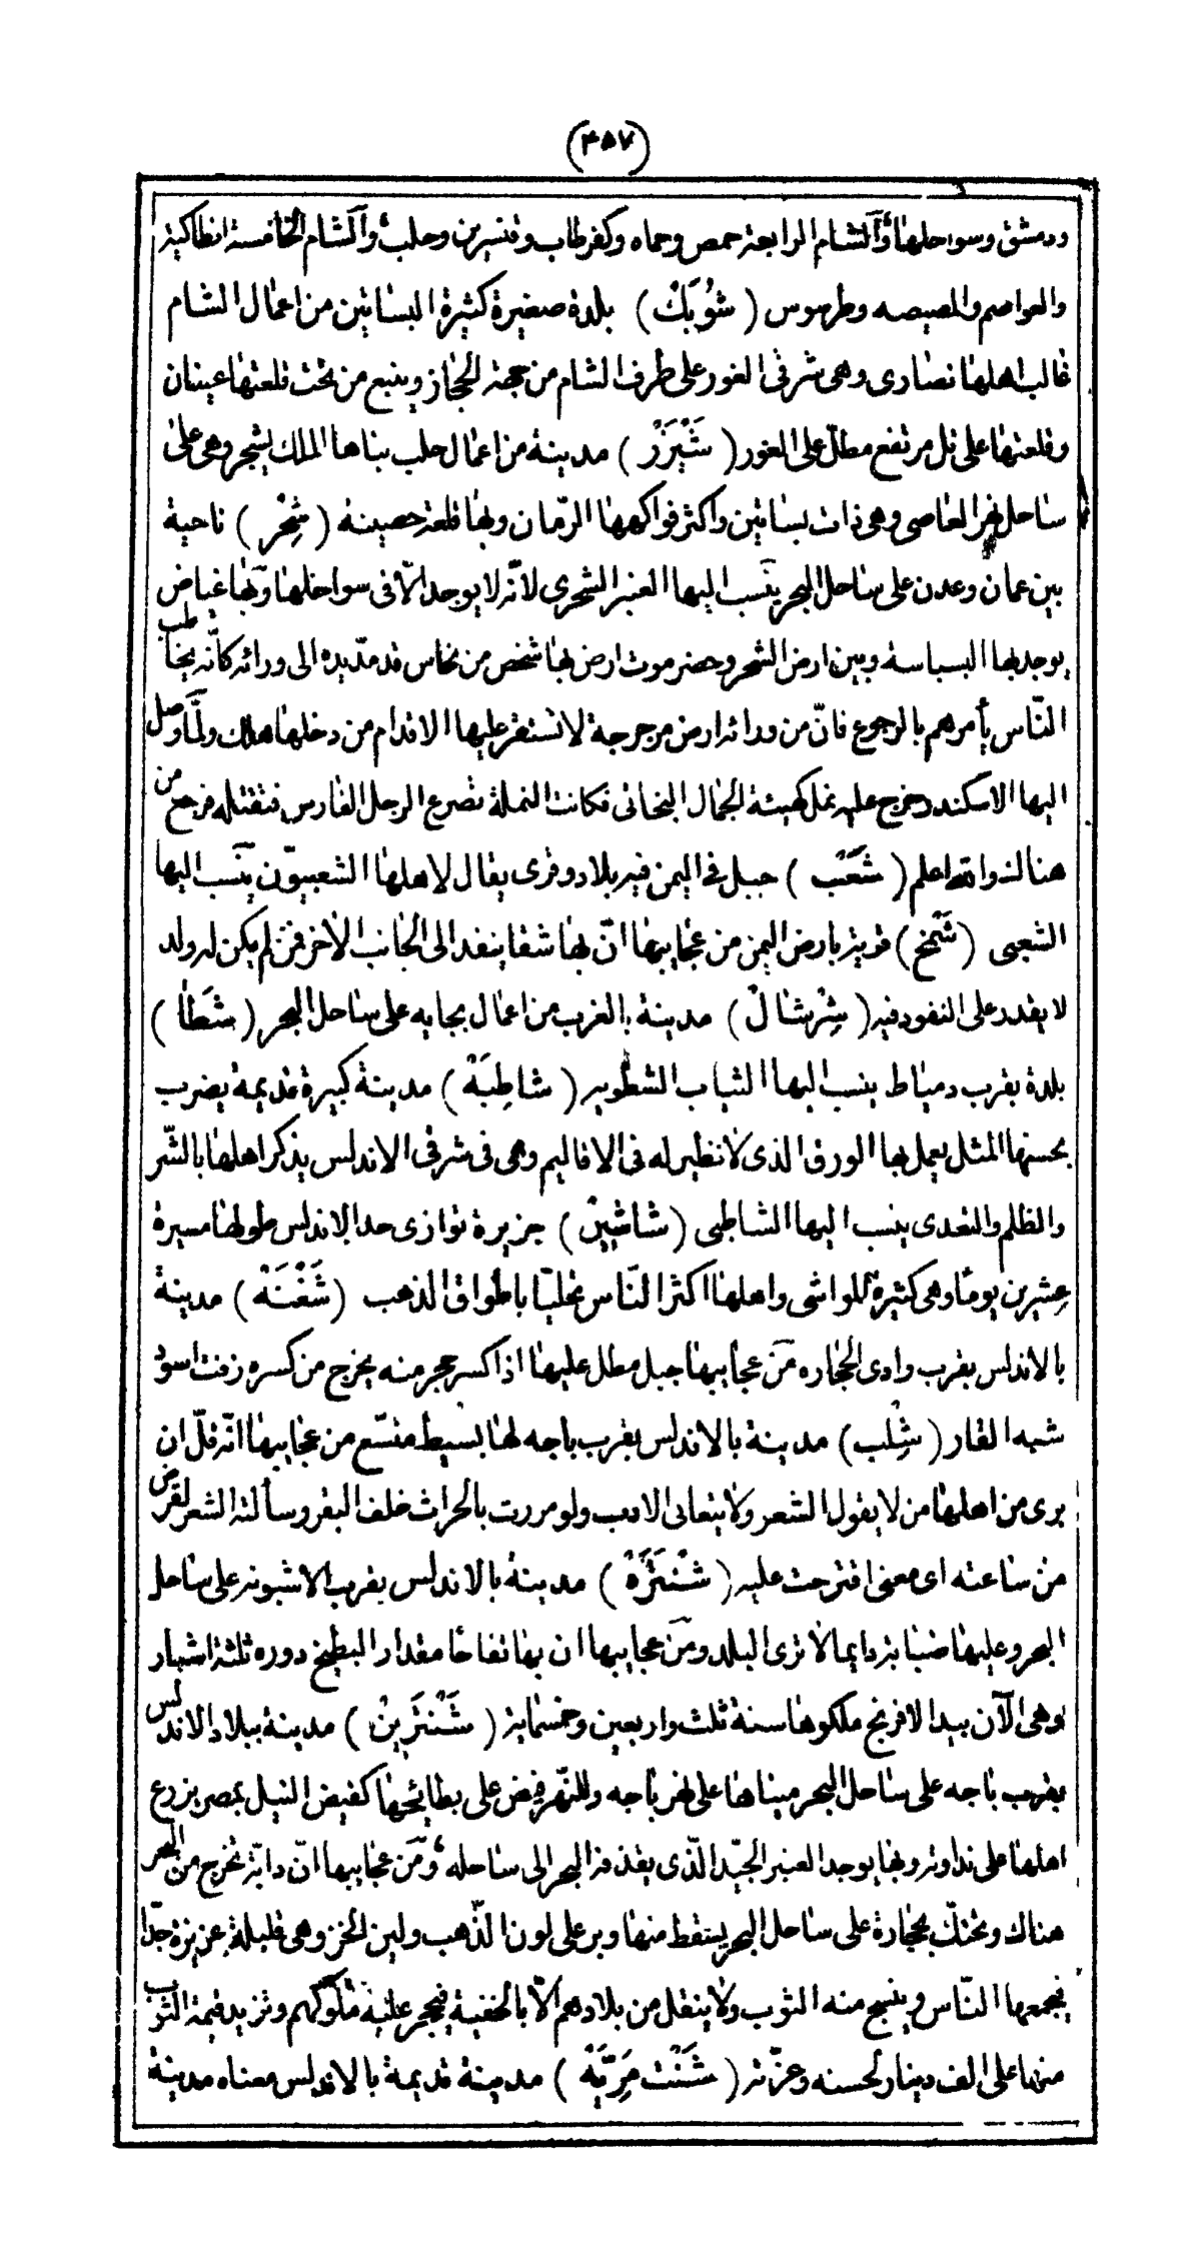 (۴۵۷)
ودمشق وسواحلها وآلشام الرابعة حمص وحماه وكفرطاب وقنسرين وحلب وآلشام الخامسة انطاكية
والعواصم والمصيصه وطرسوس (شُوبَكْ) بلدة صغيرة كثيرة البساتين من اعمال الشام
غالب اهلها نصارى وهى شرقى الغور على طرف الشام من جهة الحجاز وينبع من تحت قلعتها عينان
وقلعتها على تل مرتفع مطل على الغور (شَيْزَرْ) مدينة من اعمال حلب بناها الملك يشيجر وهى على
ساحل نهر العاصى وهى ذات بساتين واكثر فواكهها الرمّان وبها قلعة حصينة (شِحْر) ناحية
بين عمان وعدن على ساحل البحر ينسب اليها العنبر الشحرى لانّه لا يوجد الّا فى سواحلها وبها غياض
يوجد بها البسباسة وبين ارض الشحر وحضرموت ارض بها شخص من نحاس قد مدّ يده الى ورائه كانّه يخاطب
النّاس يأمرهم بالرجوع فانّ من ورائه ارض مرجرجة لا تستقر عليها الاقدام من دخلها هلك ولمّا وصل
اليها الاسكندر خرج عليه نمل كهيئة الجمال البخاتى فكانت النملة تصرع الرجل الفارس فتقتله فرجع من
هنالك والله اعلم (شَعْب) جبل فى اليمن فيه بلاد وقرى يقال لاهلها الشعبيّون ينسب اليها
الشعبى (شَمْخ) قرية بارض اليمن من عجايبها انّ بها شقا ينفد الى الجانب الاخر فمن لم يكن له ولد
لا يقدر على النفود فيه (شِرْشالْ) مدينة بالغرب من اعمال بجايه على ساحل البحر (شَطَا)
بلدة بقرب دمياط ينسب اليها الثياب الشطويه (شاطِبَهْ) مدينة كبيرة قديمة يضرب
بحسنها المثل يعمل بها الورق الذى لا نظير له فى الاقاليم وهى فى شرقى الاندلس يذكر اهلها بالشّر
والظلم والتعدى ينسب اليها الشاطبى (شاشِينْ) جزيرة توازى حد الاندلس طولها مسيرة
عشرين يوما وهى كثيرة المواشى واهلها اكثر النّاس تحليّا باطواق الذهب (شَغْنَهْ) مدينة
بالاندلس بقرب وادى الحجاره من عجايبها جبل مطل عليها اذا كسر حجر منه يخرج من كسره زفت اسود
شبه القار (شِلْب) مدينة بالاندلس بقرب باجه لها بسيط متسّع من عجايبها انّه قلّ ان
يرى من اهلها من لا يقول الشعر ولا يتعانى الادب ولو مررت بالحراث خلف البقر وسألته الشعر لقرض
من ساعته اى معنى اقترحت عليه (شَنْتَرَهْ) مدينة بالاندلس بقرب الاشبونه على ساحل
البحر وعليها ضبابة دايما لا ترى البلد ومن عجايبها ان بها تفاحًا مقدار البطيخ دوره ثلثة اشبار
وهى الآن بيد الافرنج ملكوها سنة ثلث واربعين وخمسماية (شَنْتَرِينْ) مدينة ببلاد الاندلس
بقرب باجه على ساحل البحر مبناها على نهر باجه وللنّهر فيض على بطايحها كفيض النيل بمصر يزرع
اهلها على نداوته وبها يوجد العنبر الجيّد الّذى يقذفه البحر الى ساحله ومن عجايبها انّ دابّة تخرج من البحر
هناك وتحتكّ بحجارة على ساحل البحر يسقط منها وبر على لون الذّهب ولين الخز وهى قليلة عزيزة جدّا
فيجمعها النّاس وينسج منه الثوب ولا ينقل من بلادهم الّا بالخفية فيحجر عليه ملوكهم وتزيد قيمة الثوب
منها على الف دينار لحسنه وعزّته (شَنْت مَرِيَّهْ) مدينة قديمة بالاندلس معناه مدينة